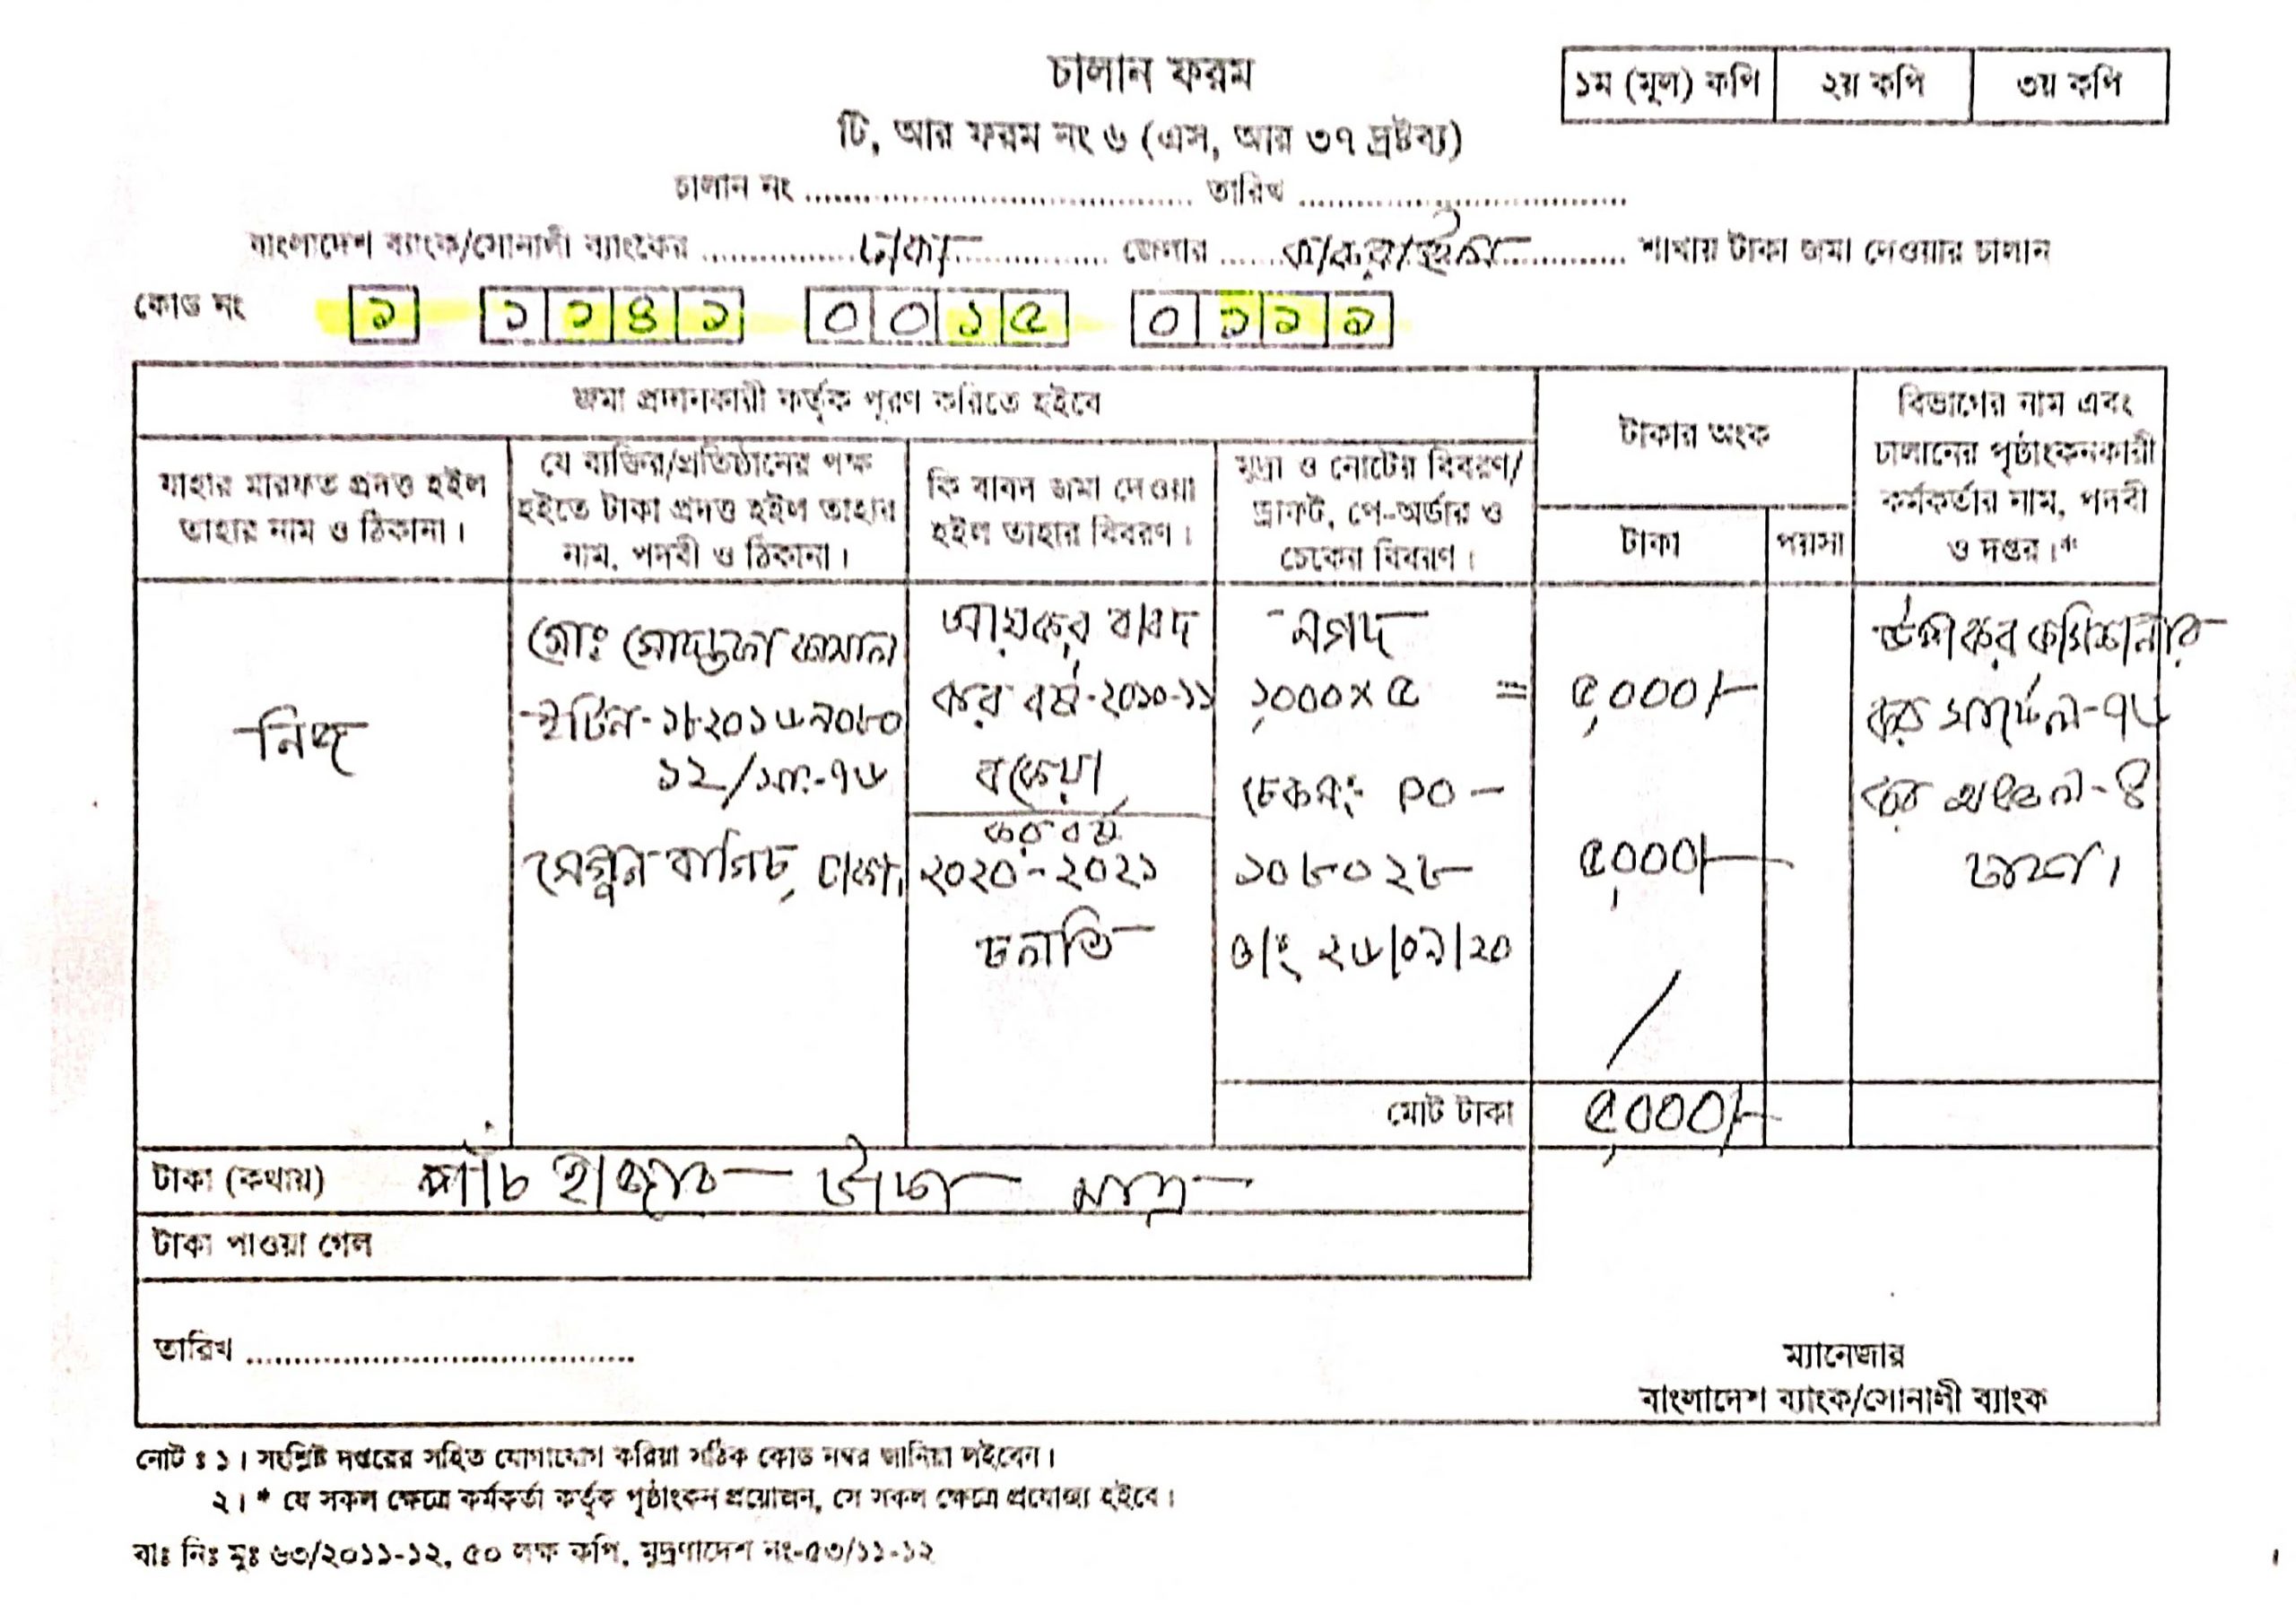 চালান ফরম
১ম (মূল) কপি ২য় কপি ৩য় কপি
টি, আর ফরম নং ৬ (এস, আর ৩৭ দ্রষ্টব্য)
চালান নং ........................................ তারিখ ........................................
বাংলাদেশ ব্যাংক/সোনালী ব্যাংকের ............ঢাকা............ জেলার ......কাকরাইল............ শাখায় টাকা জমা দেওয়ার চালান
কোড নং ১ ১১৪১ ০০১৫ ০১১১
জমা প্রদানকারী কর্তৃক পূরণ করিতে হইবে
টাকার অংক
বিভাগের নাম এবং চালানের পৃষ্ঠাংকনকারী কর্মকর্তার নাম, পদবী ও দপ্তর।*
যাহার মারফত প্রদত্ত হইল তাহার নাম ও ঠিকানা।
যে ব্যক্তির/প্রতিষ্ঠানের পক্ষ হইতে টাকা প্রদত্ত হইল তাহার নাম, পদবী ও ঠিকানা।
কি বাবদ জমা দেওয়া হইল তাহার বিবরণ।
মুদ্রা ও নোটের বিবরণ/ ড্রাফট, পে-অর্ডার ও চেকের বিবরণ।
টাকা
পয়সা
নিজ
মোঃ মোস্তফা কামাল
ইটিন-১৮২০১৬৭০৮০
১২/সা:-৭৬
সেগুন বাগিচা, ঢাকা।
আয়কর বাবদ
কর বর্ষ-২০১০-১১
বকেয়া
কর বর্ষ
২০২০-২০২১
চলতি
নগদ
১,০০০x৫ =
চেক নং: PO-
১০৮০২৮
তাং ২৬/০৯/২০
৫,০০০/-
৫,০০০/-
উপ কর কমিশনার
কর সার্কেল-৭৬
কর অঞ্চল-৪
ঢাকা।
মোট টাকা ৫,০০০/-
টাকা (কথায়) পাঁচ হাজার টাকা মাত্র
টাকা পাওয়া গেল
তারিখ ........................................
ম্যানেজার
বাংলাদেশ ব্যাংক/সোনালী ব্যাংক
নোট ঃ ১। সংশ্লিষ্ট দপ্তরের সহিত যোগাযোগ করিয়া সঠিক কোড নম্বর জানিয়া লইবেন।
২। * যে সকল ক্ষেত্রে কর্মকর্তা কর্তৃক পৃষ্ঠাংকন প্রয়োজন, সে সকল ক্ষেত্রে প্রযোজ্য হইবে।
বাঃ নিঃ মুঃ ৬৩/২০১১-১২, ৫০ লক্ষ কপি, মুদ্রণাদেশ নং-৫৩/১১-১২